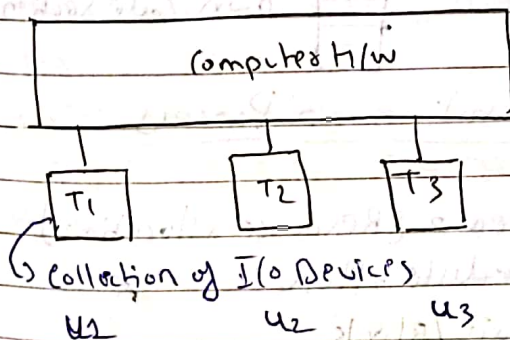 Computer H/w
T1 T2 T3
Collection of I/O Devices
U1 U2 U3